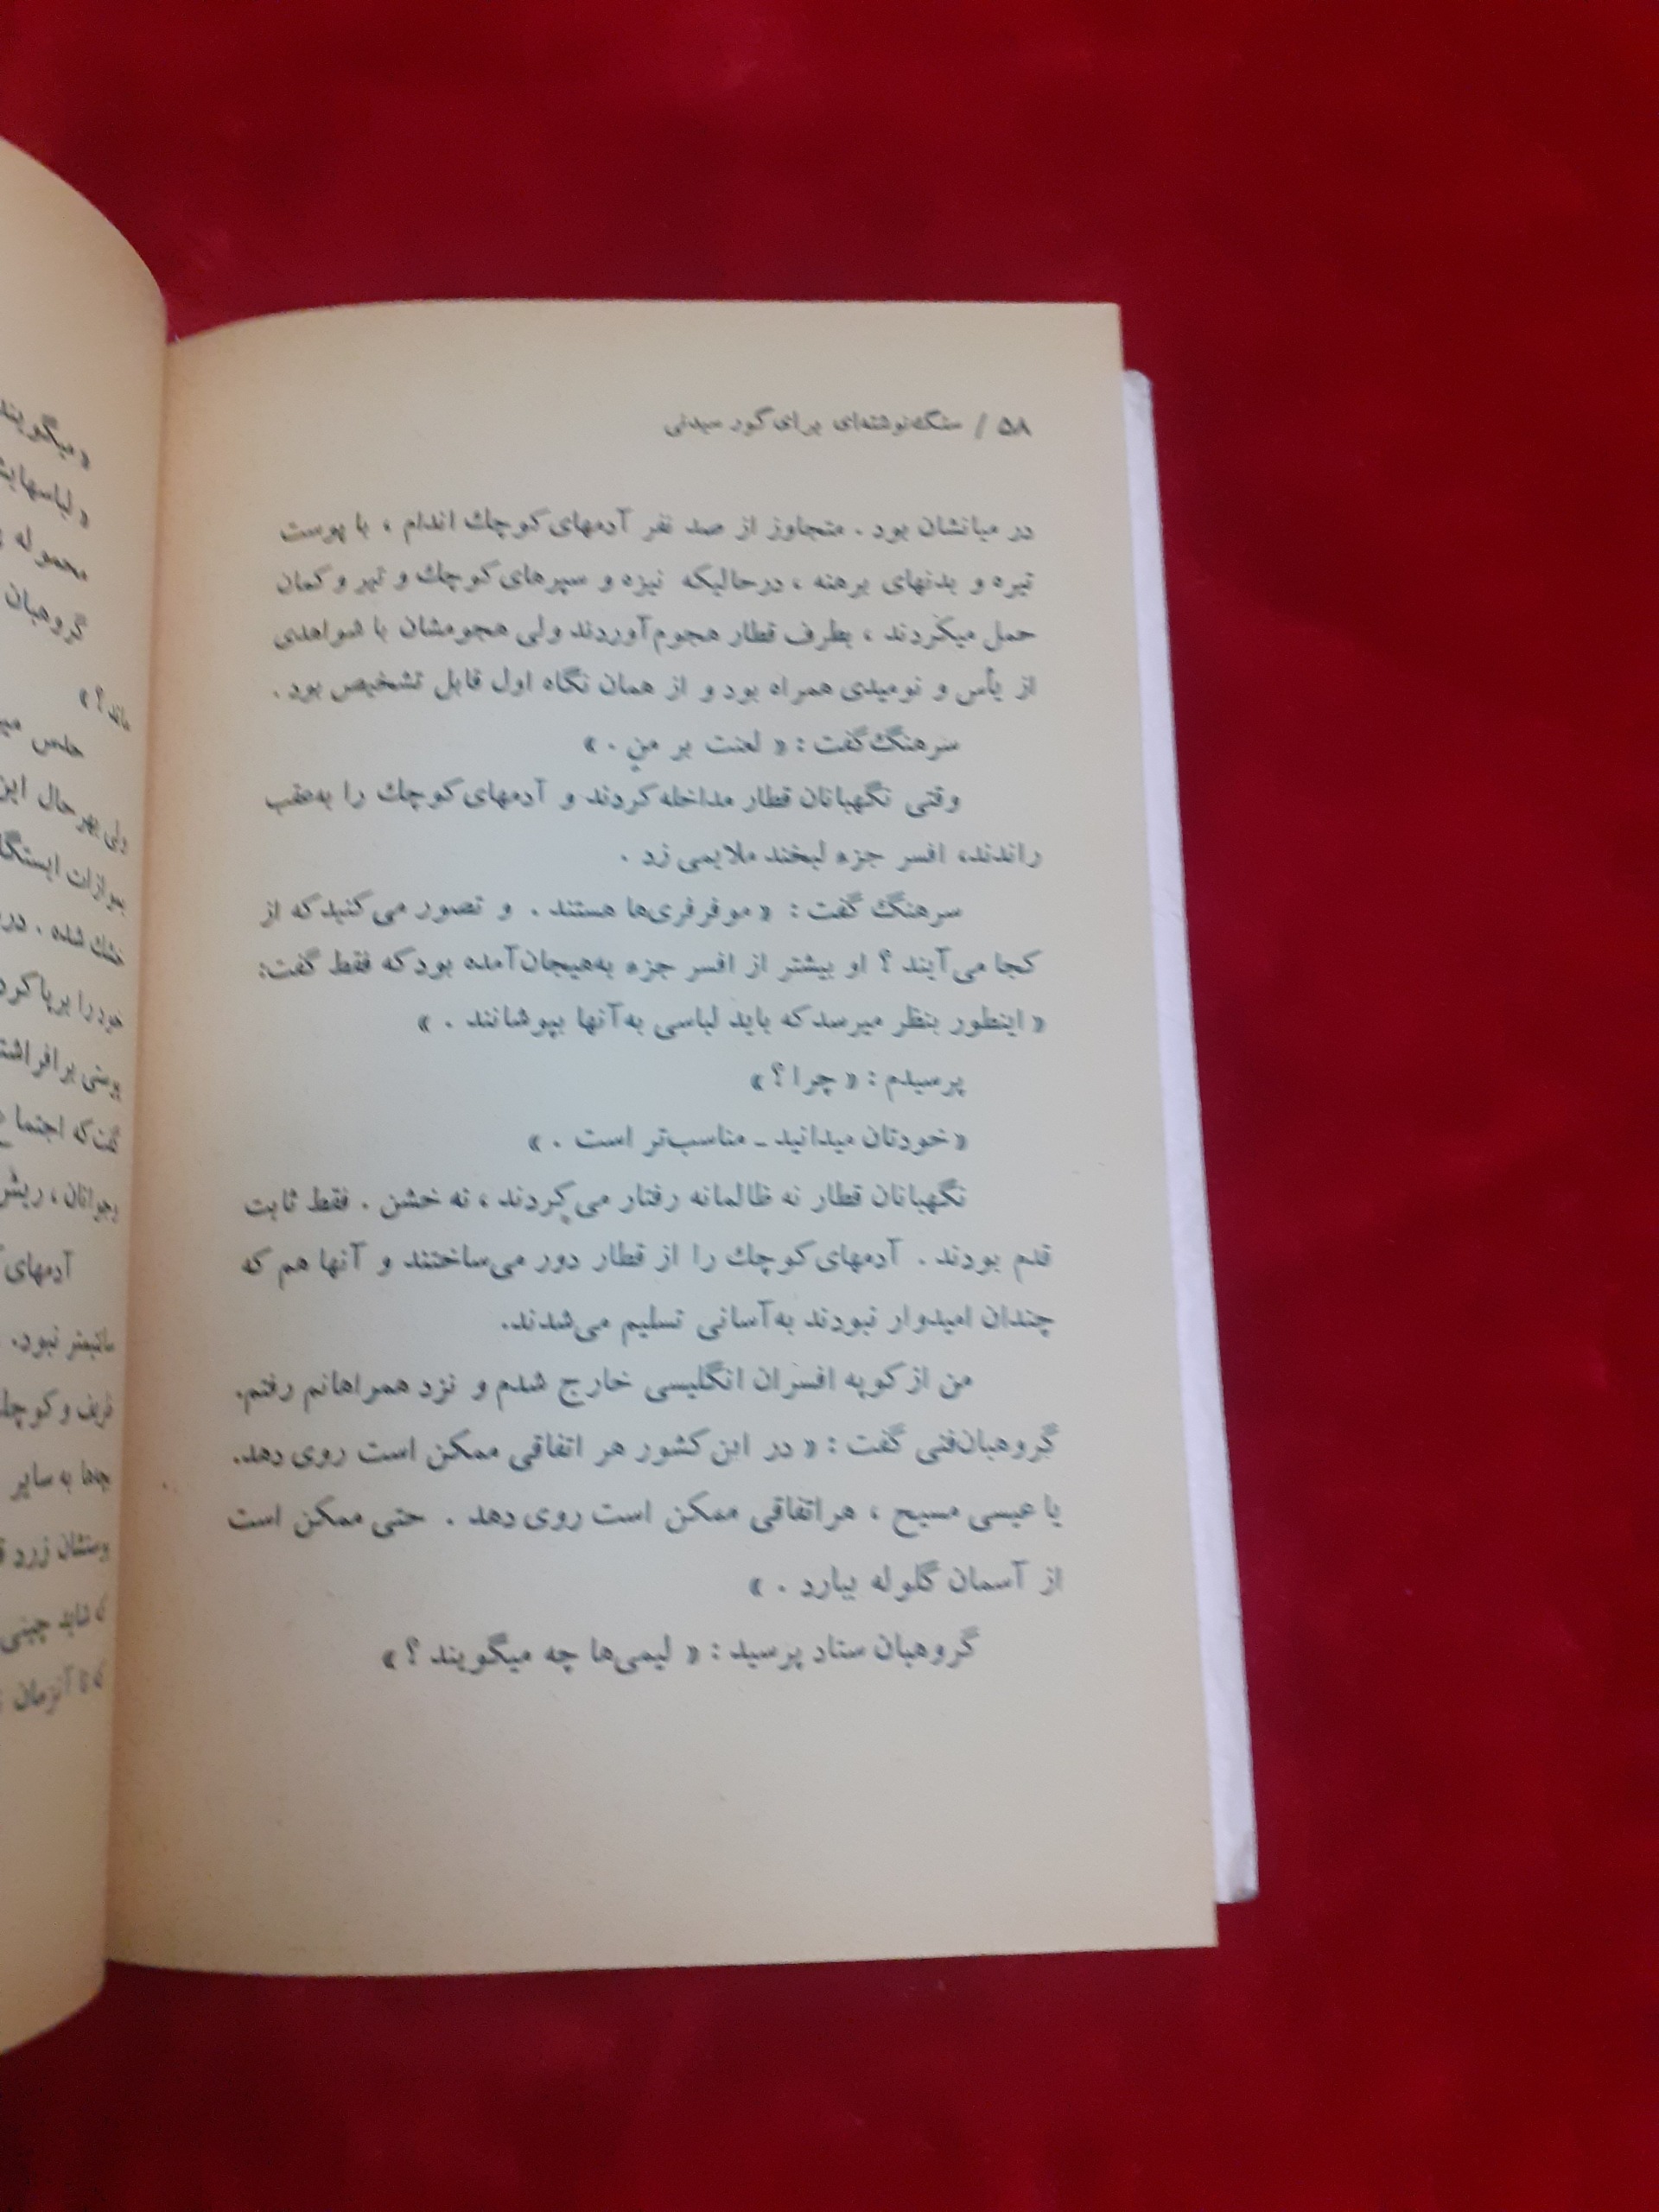 ۵۸ / سنگ‌نوشته‌ای برای گور سیدنی
در میانشان بود . متجاوز از صد نفر آدمهای کوچك اندام ، با پوست
تیره و بدنهای برهنه ، درحالیکه نیزه و سپرهای کوچك و تیر و کمان
حمل میکردند ، بطرف قطار هجوم‌آوردند ولی هجومشان با شواهدی
از یأس و نومیدی همراه بود و از همان نگاه اول قابل تشخیص بود .
سرهنگ گفت : « لعنت بر من . »
وقتی نگهبانان قطار مداخله کردند و آدمهای کوچك را به‌عقب
راندند، افسر جزء لبخند ملایمی زد .
سرهنگ گفت : « موفرفری‌ها هستند . و تصور می‌کنید که از
کجا می‌آیند ؟ او بیشتر از افسر جزء به‌هیجان‌آمده بود که فقط گفت:
« اینطور بنظر میرسد که باید لباسی به‌آنها بپوشانند . »
پرسیدم : « چرا ؟ »
« خودتان میدانید ـ مناسب‌تر است . »
نگهبانان قطار نه ظالمانه رفتار می‌کردند ، نه خشن . فقط ثابت
قدم بودند . آدمهای کوچك را از قطار دور می‌ساختند و آنها هم که
چندان امیدوار نبودند به‌آسانی تسلیم می‌شدند.
من از کوپه افسران انگلیسی خارج شدم و نزد همراهانم رفتم.
گروهبان‌فنی گفت : « در این کشور هر اتفاقی ممکن است روی دهد.
یا عیسی مسیح ، هراتفاقی ممکن است روی دهد . حتی ممکن است
از آسمان گلوله ببارد . »
گروهبان ستاد پرسید : « لیمی‌ها چه میگویند ؟ »
« میگویند
محموله
گروهبان
ماند ؟ »
ولی بهرحال این
خشك شده . در
خود را برپا کرد
گفت که اجتماع
وجوانان ، ریش
آدمهای
سانتیمتر نبود.
ظریف و کوچك
بچه‌ها به سایر
پوستشان زرد
« شاید چینی
« تا آنزمان